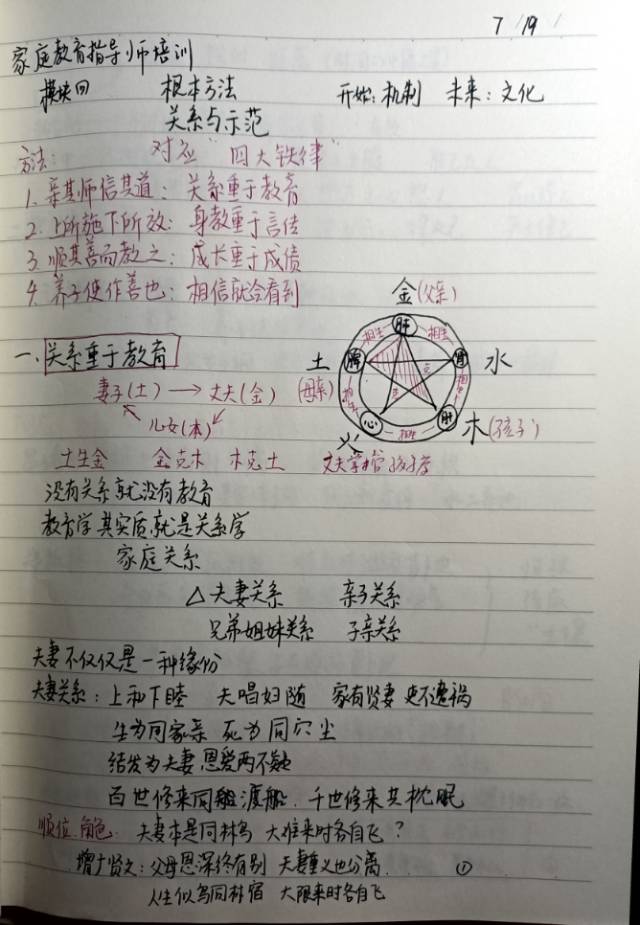 7/19/
家庭教育指导师培训
模块四 根本方法 开始:机制 未来:文化
关系与示范
方法: 对应"四大铁律"
1. 亲其师信其道:关系重于教育
2. 上所施下所效:身教重于言传
3. 顺其善而教之:成长重于成绩
4. 养子使作善也:相信就会看到
金(父亲)
一、关系重于教育
土(母亲) 脾 肺 肾 水
相生 相生 相生 相生 相生
克 克
妻子(土)→丈夫(金)
儿女(木)
火 心 肝 木(孩子)
土生金 金克木 木克土 丈夫学管孩子
没有关系就没有教育
教育学其实质就是关系学
家庭关系
△夫妻关系 亲子关系
兄弟姐妹关系 子亲关系
夫妻不仅仅是一种缘份
夫妻关系:上和下睦 夫唱妇随 家有贤妻 丈夫不遭祸
生为同家亲 死为同穴尘
结发为夫妻 恩爱两不疑
百世修来同船渡船.千世修来共枕眠
顺位.角色. 夫妻本是同林鸟 大难来时各自飞?
增广贤文:父母恩深终有别 夫妻重义也分离. ①
人生似鸟同林宿 大限来时各自飞